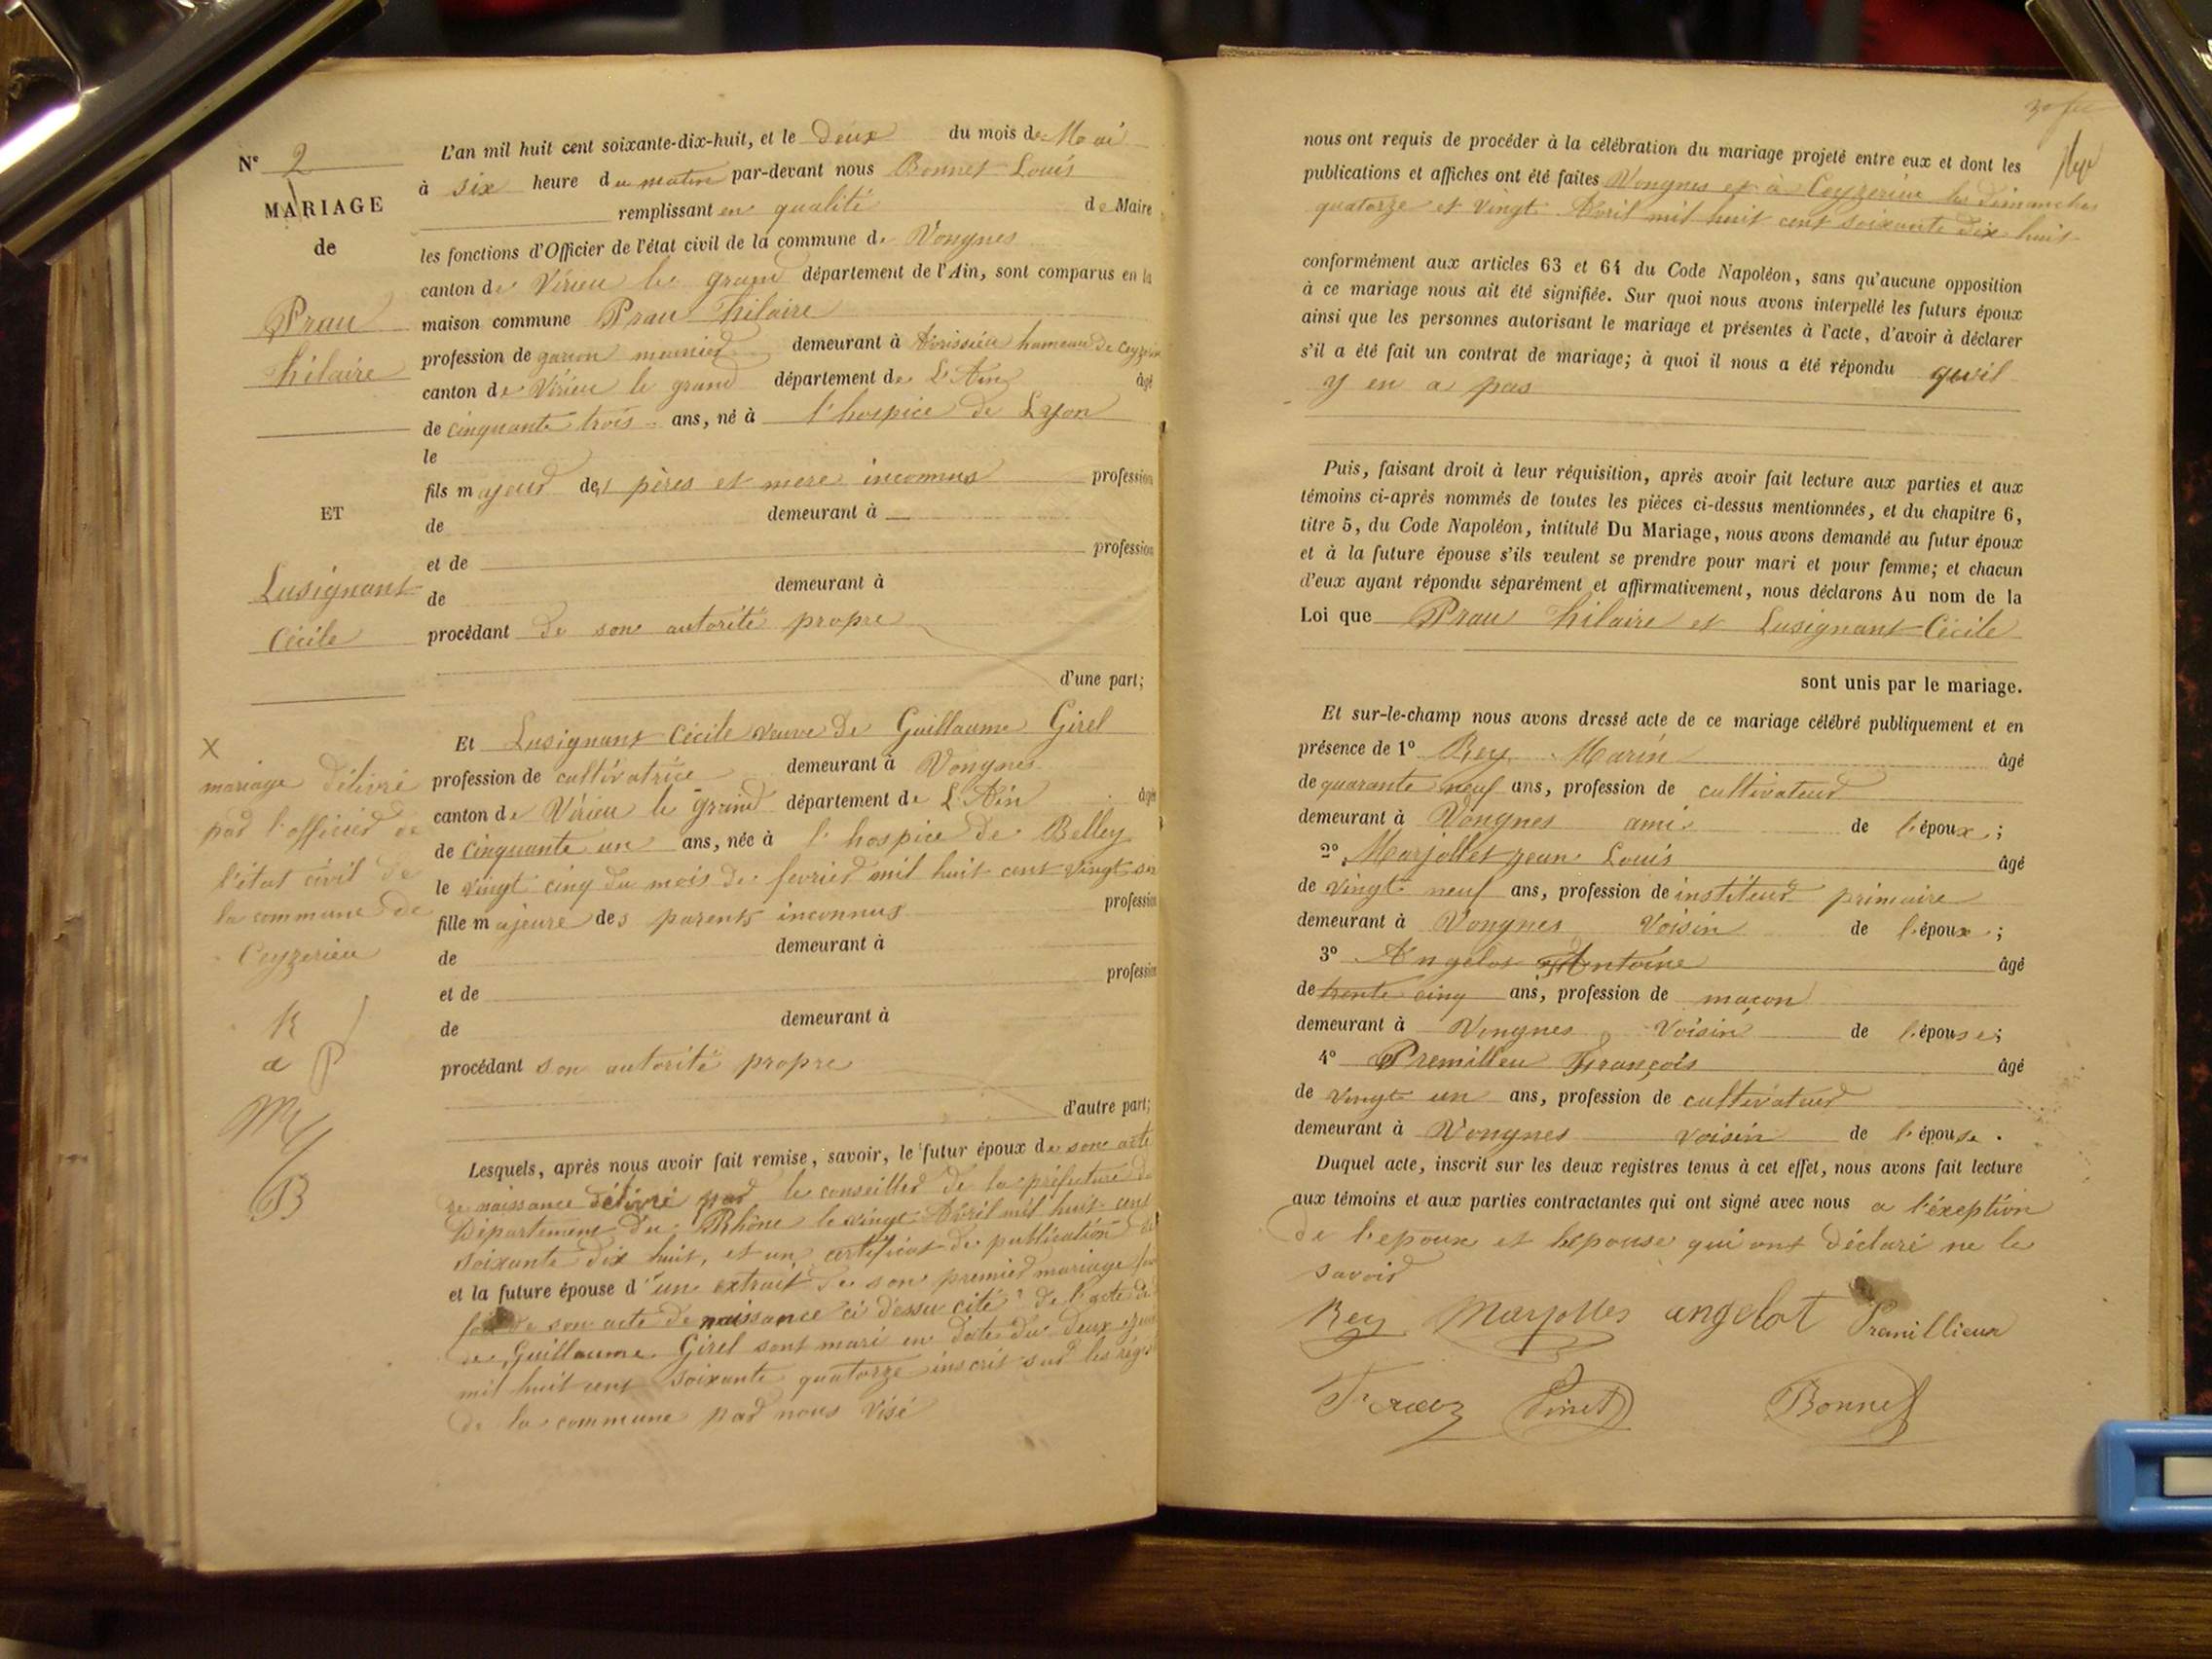 N° 2
MARIAGE
de
Prau
hilaire
ET
Lusignant
Cécile
X
mariage délivré
par l'officier de
l'état civil de
la commune de
Ceyzerieu
R
a P
M
B
L'an mil huit cent soixante-dix-huit, et le deux du mois de Mai
à six heure du matin par-devant nous Bonnet Louis
remplissant en qualité de Maire
les fonctions d'Officier de l'état civil de la commune de Vongnes
canton de Virieu le grand département de l'Ain, sont comparus en la
maison commune Prau hilaire
profession de garcon meunier demeurant à Avrissieu hameau de Ceyzerieu
canton de Virieu le grand département de L'Ain âgé
de cinquante trois ans, né à l'hospice de Lyon
le
fils majeur des pères et mere inconnus profession
de demeurant à
et de profession
de demeurant à
procédant de son autorité propre
d'une part;
Et Lusignant Cécile veuve de Guillaume Girel
profession de cultivatrice demeurant à Vongnes
canton de Virieu le Grand département de L'Ain âgée
de cinquante un ans, née à l'hospice de Belley
le vingt cinq du mois de fevrier mil huit cent vingt six
fille majeure des parents inconnus profession
de demeurant à
et de profession
de demeurant à
procédant son autorité propre
d'autre part;
Lesquels, après nous avoir fait remise, savoir, le futur époux de son acte
de naissance délivré par le conseiller de la préfecture du
Département du Rhône le vingt Avril mil huit cent
soixante dix huit, et un certificat de publication de
et la future épouse d'un extrait de son premier mariage
de son acte de naissance ci dessu cité de l'acte de
de Guillaume Girel sont mari en date du deux
mil huit cent soixante quatorze inscrit sur les
de la commune par nous visé
nous ont requis de procéder à la célébration du mariage projeté entre eux et dont les
publications et affiches ont été faites Vongnes et à Ceyzerieu les dimanches
quatorze et vingt Avril mil huit cent soixante dix huit
conformément aux articles 63 et 64 du Code Napoléon, sans qu'aucune opposition
à ce mariage nous ait été signifiée. Sur quoi nous avons interpellé les futurs époux
ainsi que les personnes autorisant le mariage et présentes à l'acte, d'avoir à déclarer
s'il a été fait un contrat de mariage; à quoi il nous a été répondu qu'il
y en a pas
Puis, faisant droit à leur réquisition, après avoir fait lecture aux parties et aux
témoins ci-après nommés de toutes les pièces ci-dessus mentionnées, et du chapitre 6,
titre 5, du Code Napoléon, intitulé Du Mariage, nous avons demandé au futur époux
et à la future épouse s'ils veulent se prendre pour mari et pour femme; et chacun
d'eux ayant répondu séparément et affirmativement, nous déclarons Au nom de la
Loi que Prau hilaire et Lusignant Cécile
sont unis par le mariage.
Et sur-le-champ nous avons dressé acte de ce mariage célébré publiquement et en
présence de 1° Rey Marin âgé
de quarante neuf ans, profession de cultivateur
demeurant à Vongnes ami de l'époux;
2° Marjollet jean Louis âgé
de vingt neuf ans, profession de institeur primaire
demeurant à Vongnes Voisin de l'époux;
3° Angelot Antoine âgé
de trente cinq ans, profession de maçon
demeurant à Vongnes Voisin de l'épouse;
4° Premilleu François âgé
de vingt un ans, profession de cultivateur
demeurant à Vongnes voisin de l'épouse.
Duquel acte, inscrit sur les deux registres tenus à cet effet, nous avons fait lecture
aux témoins et aux parties contractantes qui ont signé avec nous a l'éxeption
de l'epoux et l'épouse qui ont déclaré ne le
savoir
Rey Marjollet angelot Premillieux
Bonnet